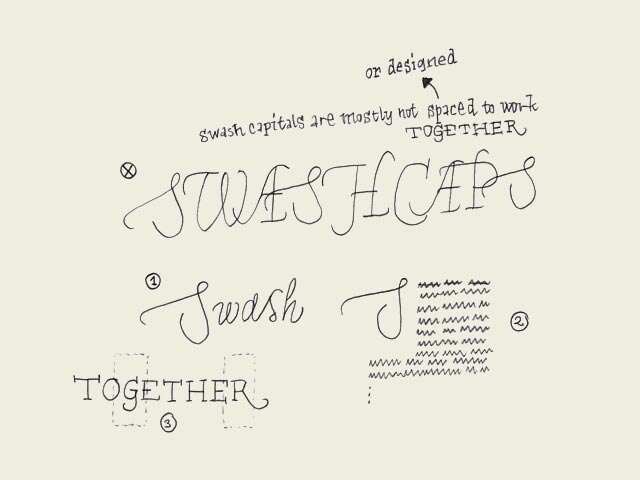 or designed
swash capitals are mostly not spaced to work
TOGETHER
X
SWASHCAPS
1
Swash
S
2
TOgETHER
3